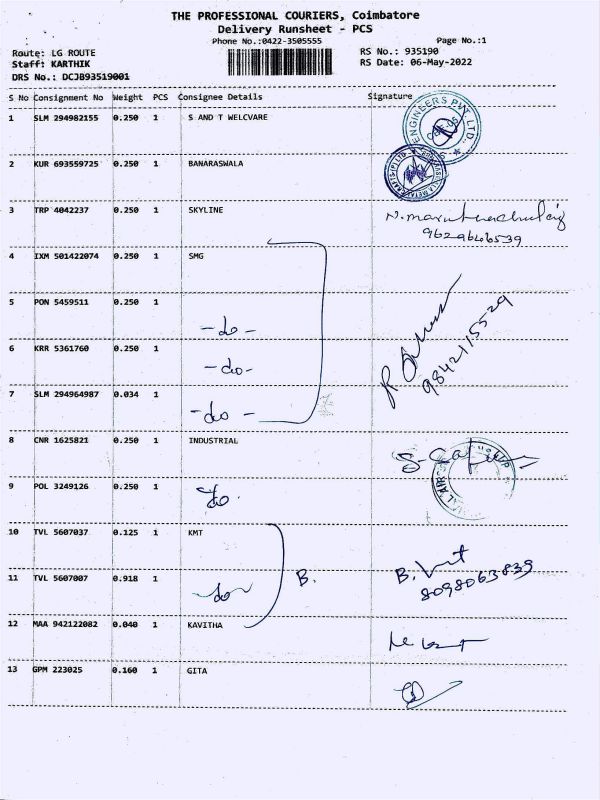 THE PROFESSIONAL COURIERS, Coimbatore
Delivery Runsheet - PCS
Phone No.:0422-3505555 Page No.:1
Route: LG ROUTE RS No.: 935190
Staff: KARTHIK RS Date: 06-May-2022
DRS No.: DCJB93519001
S No Consignment No Weight PCS Consignee Details Signature
1 SLM 294982155 0.250 1 S AND T WELCVARE
ENGINEERS PVT. LTD.
2 KUR 693559725 0.250 1 BANARASWALA
3 TRP 4042237 0.250 1 SKYLINE
9629646539
4 IXM 501422074 0.250 1 SMG
5 PON 5459511 0.250 1
-do-
9842115529
6 KRR 5361760 0.250 1
-do-
7 SLM 294964987 0.034 1
-do-
8 CNR 1625821 0.250 1 INDUSTRIAL
9 POL 3249126 0.250 1
do.
10 TVL 5607037 0.125 1 KMT
11 TVL 5607007 0.918 1 B.
-do-
8098063839
12 MAA 942122082 0.040 1 KAVITHA
13 GPM 223025 0.160 1 GITA